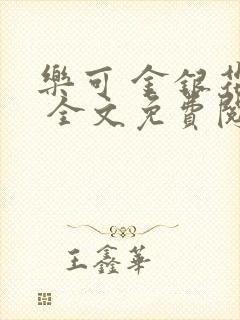 樂可 金銀花
全文免費閱
王鑫華